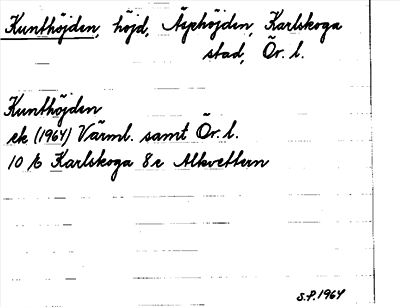 Kunthöjden, höjd, Äsphöjden, Karlskoga
stad, Ör. l.
Kunthöjden
ek (1964) Värml. samt Ör. l.
10 E Karlskoga 8 e Alkvettern
S.P. 1964